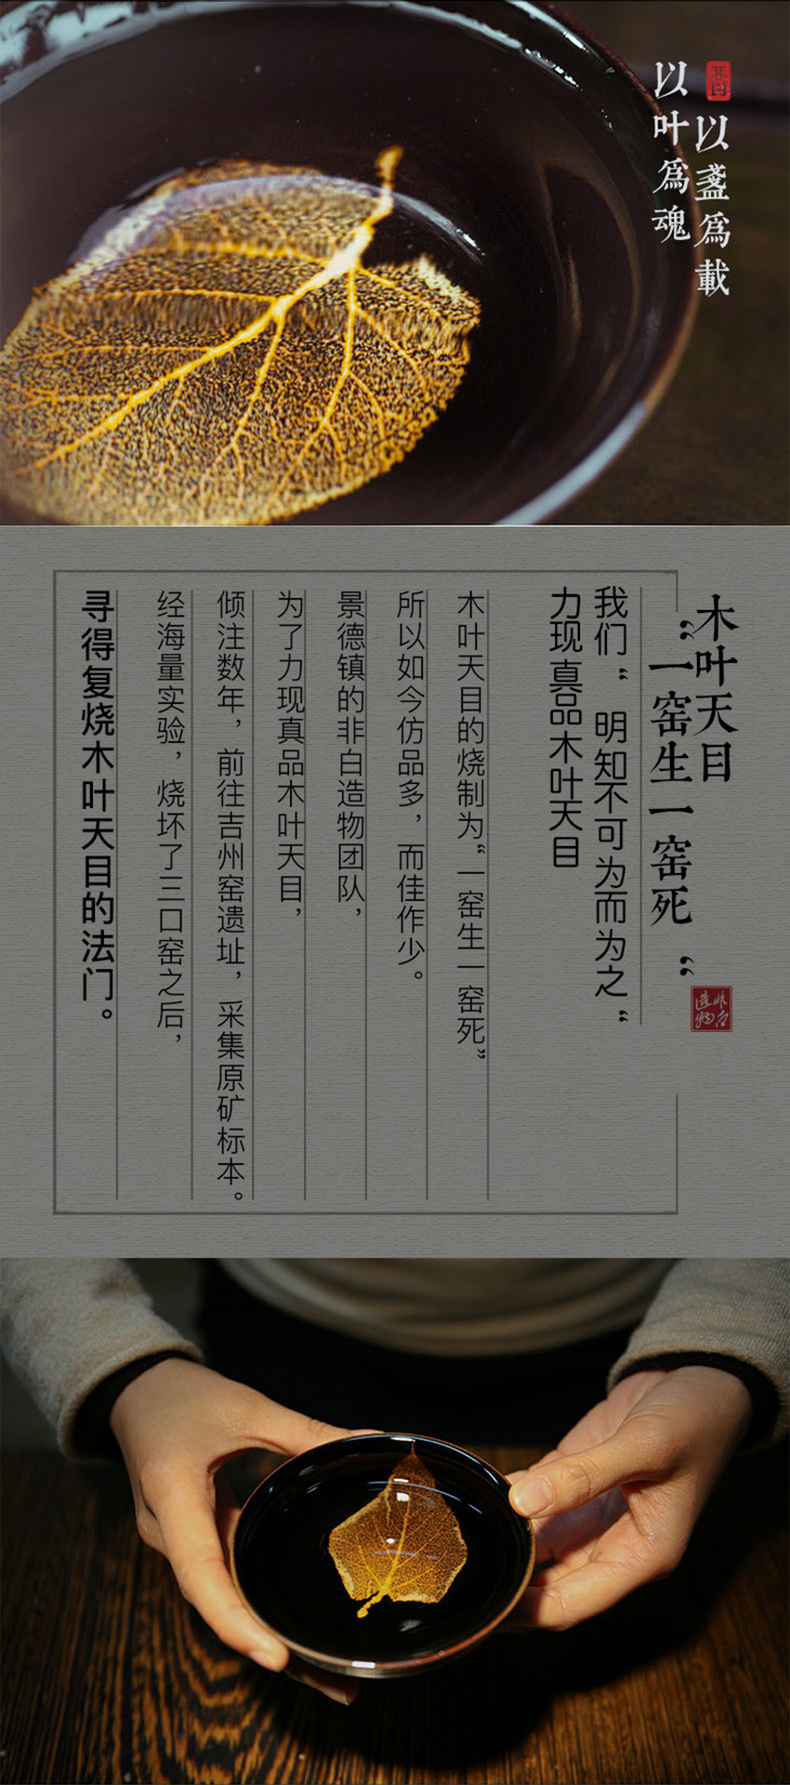 以盏爲載
以叶爲魂
木叶天目
“一窑生一窑死“
非白造物
我们“明知不可为而为之“
力现真品木叶天目
木叶天目的烧制为“一窑生一窑死”
所以如今仿品多，而佳作少。
景德镇的非白造物团队，
为了力现真品木叶天目，
倾注数年，前往吉州窑遗址，采集原矿标本。
经海量实验，烧坏了三口窑之后，
寻得复烧木叶天目的法门。